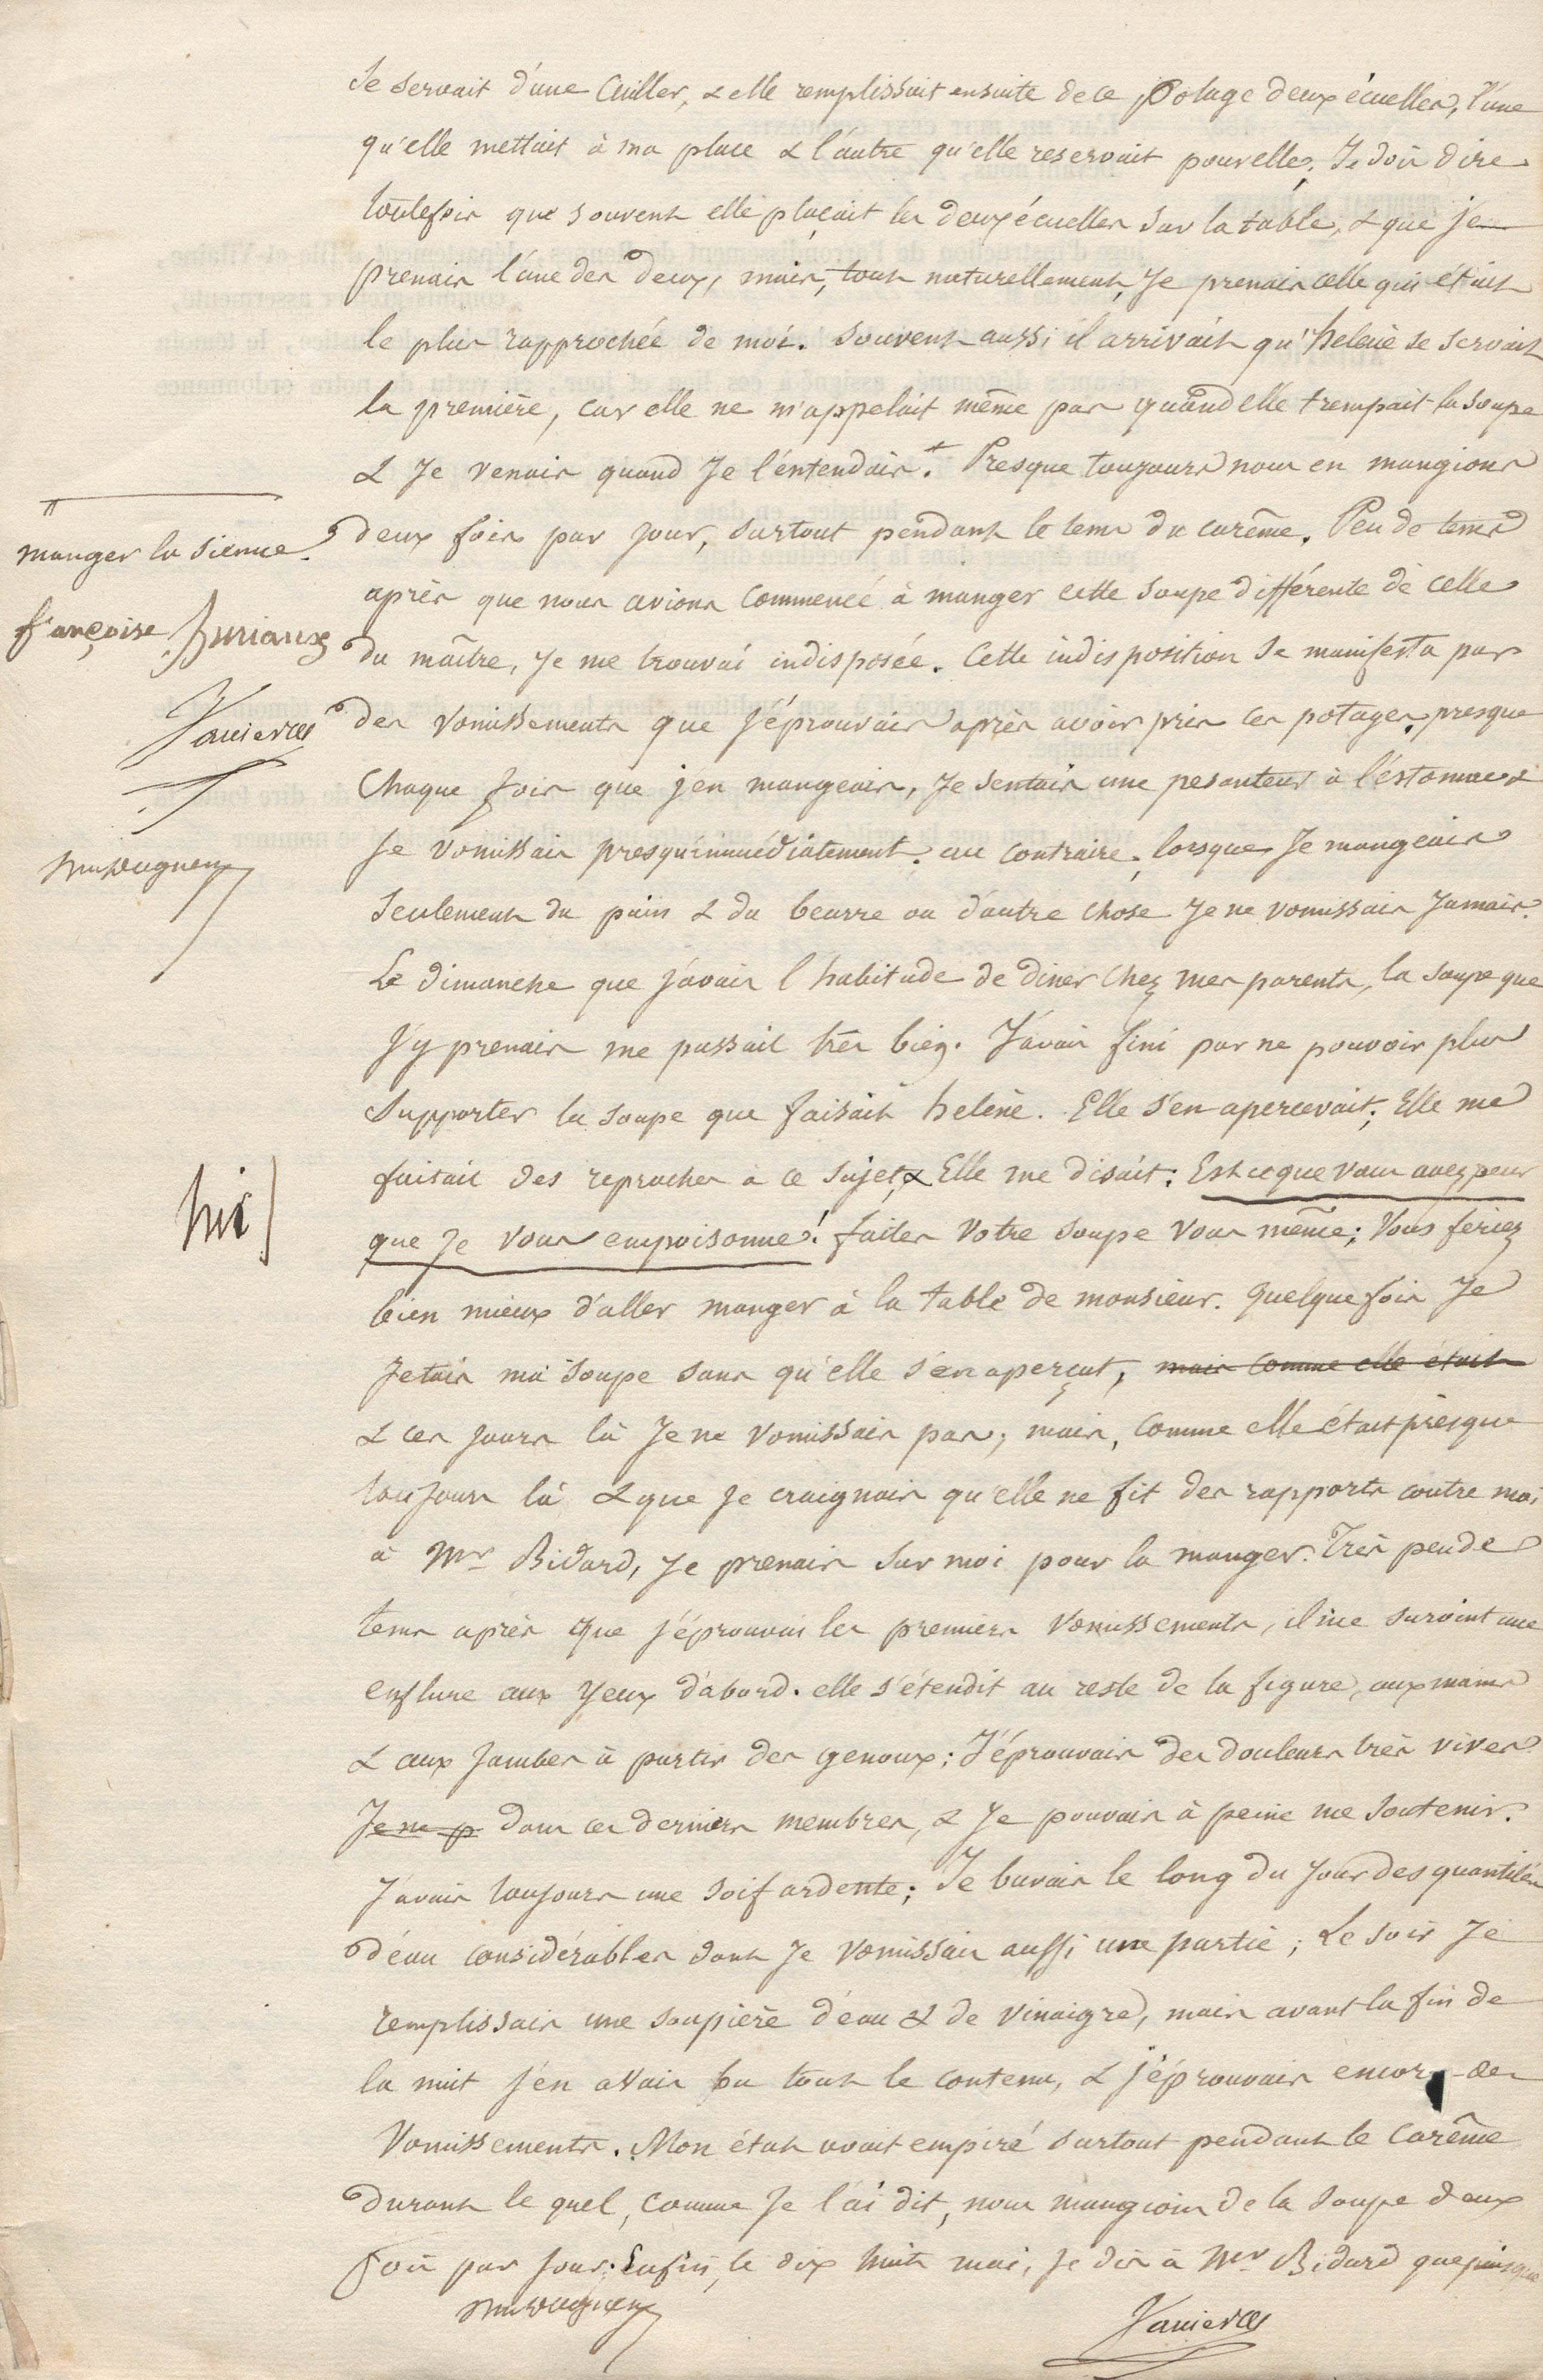 se servait d'une Cuiller, & elle remplissait ensuite de ce potage deux écuelles, l'une
qu'elle mettait à ma place & l'autre qu'elle reservait pour elle. Je dois dire
toutefois que souvent elle plaçait les deux écuelles sur la table, & que je
prenais l'une des deux, mais, tout naturellement, Je prenais celle qui était
le plus rapprochée de moi. Souvent aussi il arrivait qu'helene se servait
la première, car elle ne m'appelait même pas quand elle trempait la soupe
& Je venais quand Je l'entendais + . Presque toujours nous en mangions
deux fois par jour, surtout pendant le tems du carême. Peu de tems
après que nous avions commencé à manger cette soupe différente de celle
du maître, Je me trouvai indisposée. Cette indisposition se manifesta par
des vomissements que J'éprouvais après avoir pris ces potages. presque
Chaque fois que j'en mangeais, Je sentais une pesanteur à l'estomac &
Je vomissais presqu'immédiatement. au contraire, lorsque Je mangeais
Seulement du pain & du beurre ou d'autre chose Je ne vomissais Jamais.
Le dimanche que j'avais l'habitude de diner Chez mes parents, la soupe que
J'y prenais me passait très bien. J'avais fini par ne pouvoir plus
Supporter la soupe que faisait helene. Elle s'en apercevait; Elle me
faisait des reproches à ce sujet, & Elle me disait: Est ce que vous avez peur
que Je vous empoisonne! faites Votre soupe Vous même; Vous feriez
bien mieux d'aller manger à la table de monsieur. Quelquefois Je
Jetais ma soupe sans qu'elle s'en aperçut, mais comme elle était
& ces jours là Je ne vomissais pas; mais, Comme elle était presque
toujours là & que Je craignais qu'elle ne fit des rapports contre moi
à Mr Bidard, Je prenais sur moi pour la manger. Très peu de
tems après que J'éprouvai les premiers vomissements, il me survint une
enflure aux yeux d'abord. elle s'étendit au reste de la figure, aux mains
& aux Jambes à partir des genoux; J'éprouvais des douleurs très vives
Je ne p dans ces derniers membres, & Je pouvais à peine me soutenir.
J'avais toujours une soif ardente; Je buvais le long du Jour des quantités
d'eau considérables dont Je vomissais aussi une partie; Le soir Je
remplissais une soupière d'eau & de vinaigre, mais avant la fin de
la nuit J'en avais bu tout le contenu, & J'éprouvais encore des
Vomissements. Mon état avait empiré surtout pendant le Carême
durant le quel, Comme Je l'ai dit, nous mangions de la soupe deux
fois par Jour. Enfin, le dix huit mai, Je dis à Mr Bidard que puisque
manger la sienne.
françoise huriaux